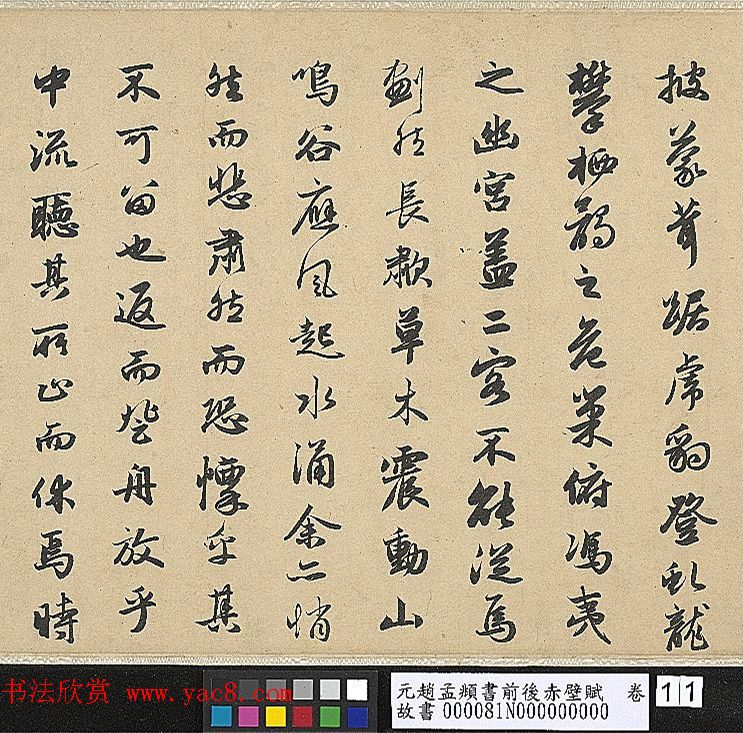 披蒙茸踞虎豹登虬龍
攀栖鶻之危巢俯馮夷
之幽宮蓋二客不能從焉
劃然長歗草木震動山
鳴谷應風起水涌余亦悄
然而悲肅然而恐懔乎其
不可留也返而登舟放乎
中流聽其所止而休焉時
书法欣赏 www.yac8.com
元趙孟頫書前後赤壁賦 卷 11
故書 000081N000000000